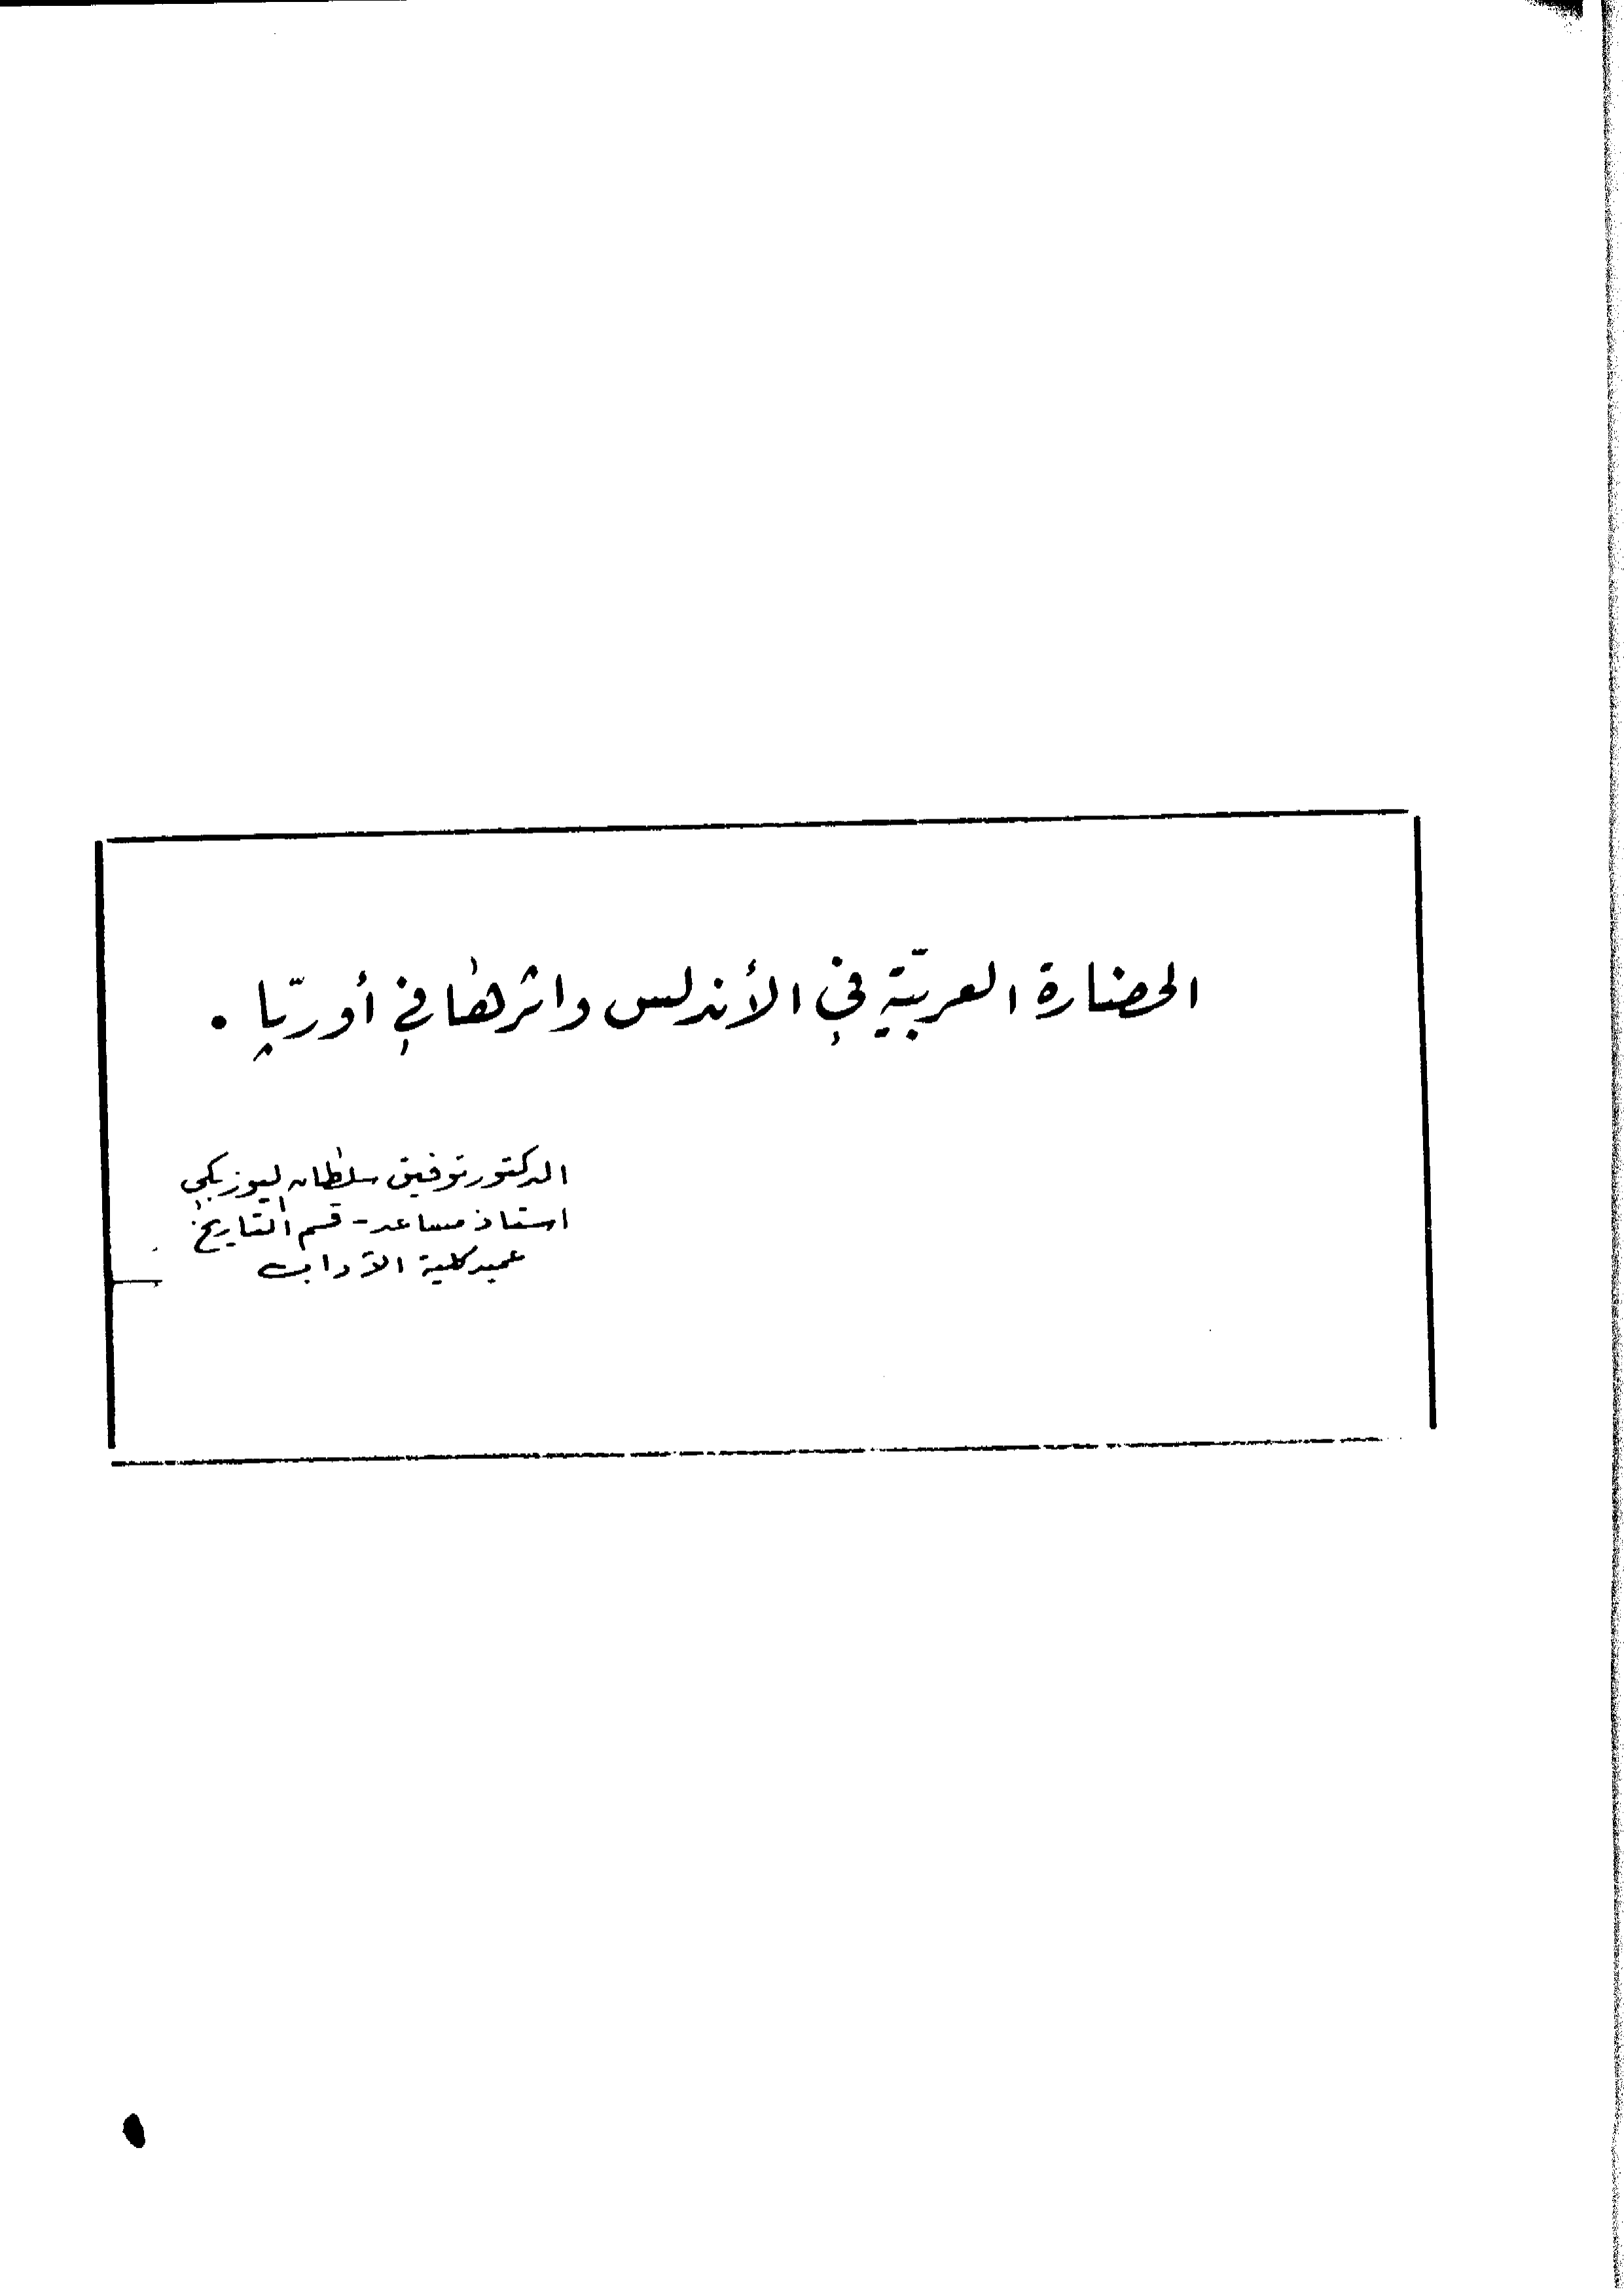 الحضارة العربيّة في الأندلس واثرها في أوربّا .
الدكتور توفيق سلطان اليوزبكي
استاذ مساعد - قسم التاريخ
عميد كلية الآداب